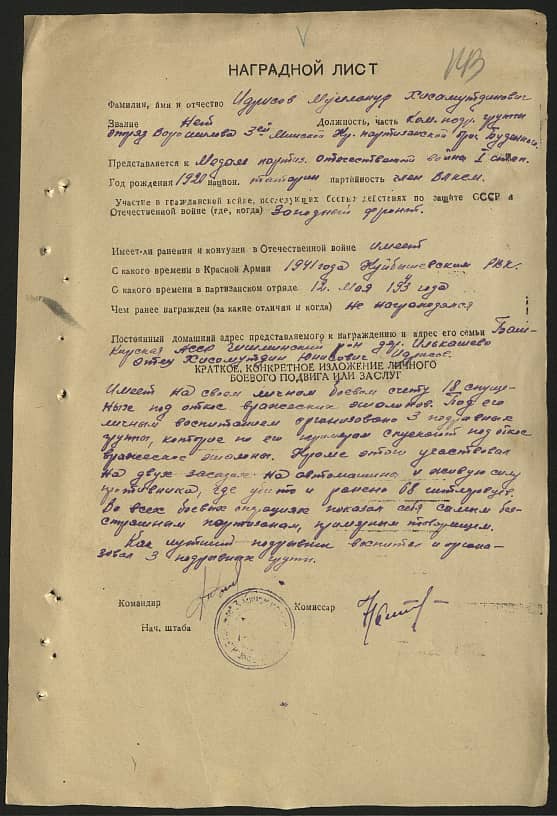 143
НАГРАДНОЙ ЛИСТ
Фамилия, имя и отчество Идрисов Хисомутдинович
Звание Нет Должность, часть ком. подр. группы
отряд Ворошилова 3ей Минской партизанской бриг. Буденног.
Представляется к Медам партиз. отечественой война I степ.
Год рождения 1920 национ. татарин партийность член ВЛКСМ.
Участие в гражданской войне, последующих боевых действиях по защите СССР и
Отечественной войне (где, когда) Западный фронт.
Имеет-ли ранения и контузии в Отечественной войне имеет
С какого времени в Красной Армии 1941 года Куйбышевским РВК.
С какого времени в партизанском отряде 12. мая года
Чем ранее награжден (за какие отличия и когда) не награждался
Постоянный домашний адрес представляемого к награждению и адрес его семьи Баш-
кирская АССР Чишминский р-он дер. Илькашево
отец Хисомутдин Юнасович Идрисов
КРАТКОЕ, КОНКРЕТНОЕ ИЗЛОЖЕНИЕ ЛИЧНОГО
БОЕВОГО ПОДВИГА ИЛИ ЗАСЛУГ
Имеет на своем личном боевом счету 18 спуще-
ных под откос вражеских эшолонов. Под его
личным воспитанием организовано 3 подрывных
группы, которые по его примерам спускают под откос
вражеские эшалоны. Кроме этого участвовал
на двух засадах на автомашины и живую силу
противника, где убито и ранено 68 гитлеровцев.
Во всех боевых операциях показал себя самым бес-
страшным партизаном, примерным товарищем.
Как лутший подрывник воспитал и органи-
зовал 3 подрывных групп.
Командир Комиссар
Нач. штаба